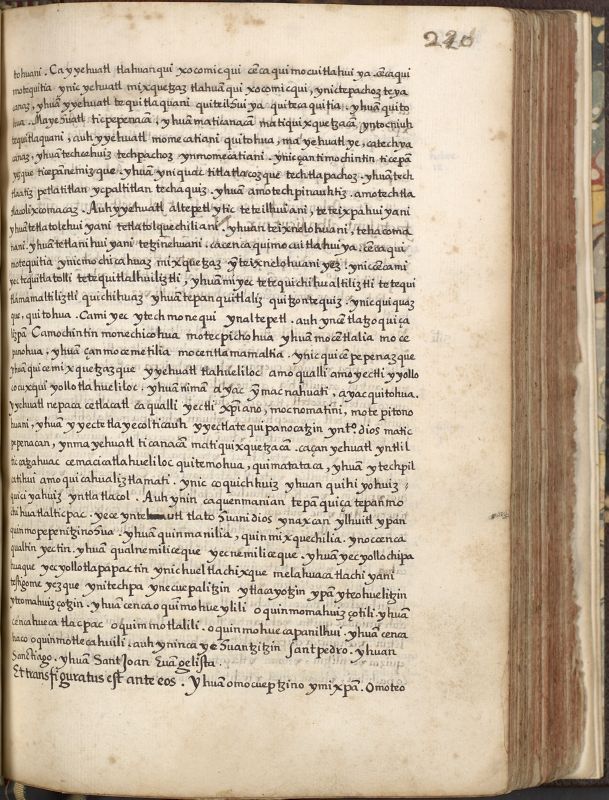 220
tohuani. Ca yyehuatl tlahuanqui xocomicqui cēca quimocuitlahuiya. cēcaqui
motequitia ynic yehuatl mixquetzaz tlahuāqui xocomicqui, ynic tepachoz teya
canaz, yhuā yyehuatl tequitlaquani quiteilhuiya quitecaquitia. yhuā quito
hua. Ma yehuatl ticpepenacā, yhuā maticanacā matiquixquetzacā, yntocniuh
tequitlaquani, auh yyehuatl momecatiani quitohua, ma yehuatl ye, catechya
canaz, yhuā techcehuiz techpachoz ynmomecatiani. ynic çan timochintin ticepā
yezque ticepānemizque. yhuā yniquac titlatlacozque techtlapachoz. yhuā tech
tlaatiz petlatitlan ycpaltitlan techaquiz. yhuā amotechpinauhtiz. amotechtla
tlacolixcomacaz. Auh yyehuatl altepetl ytic teteilhuiani, teteixpahuiyani
yhuā tetlatolehuiyani tetlatolquechiliani. yhuan teixnelohuani, tehacoma
niani. yhuā tetlanihuiyani tetzinehuani. cacenca quimocuitlahuiya. cēcaqui
motequitia ynicmochicahuaz mixquetzaz yteixnelohuani yez. yniccēcami
yec tequitlatolli tetequitlalhuiliztli, yhuā miyec tetequichihualtiliztli tetequi
tlamamaltiliztli quichihuaz yhuā tepanquitlaliz quitzontequiz. ynic quiquaz
que, quitohua. Camiyec ytechmonequi ynaltepetl. auh yncē tlatzoquiça
lizpā Camochintin monechicohua motecpichohua yhuā mocētlalia moce
panohua, yhuā çan mocemetilia mocentlamamaltia. ynic quicepepenazque
yhuā quicemixquetzazque yyehuatl tlahueliloc amoqualli amoyectli yyollo
cocuxqui yollotlahueliloc. yhuā nimā ayac ymacnahuati, ayac quitohua.
yyehuatl nepaca cetlacatl caqualli yectli xpiano, mocnomatini, motepitono
huani, yhuā yyectetlayecolticauh yyectlatequipanocatzin yntº. dios matic
pepenacan, ynmayehuatl ticanacā matiquixquetzacā. caçan yehuatl yntlil
ticatzahuac cemacicatlahueliloc quitemohua, quimatataca, yhuā ytechpil
catihui amoquicahualiztlamati. ynic coquichuiz yhuan quihiyohuiz
quiciyahuiz yntlatlacol. Auh ynin caquenmanian tepāquiça tepāmo
chihua tlalticpac. yece yntehuatl tlatohuani dios ynaxcan ylhuitl ypan
quinmopepenitzinohua. yhuā quinmanilia, quinmixquechilia. ynocenca
qualtin yectin. yhuā qualnemiliceque yecnemiliceque. yhuā yecyollochipa
huaque yecyollotlapapactin ynichueltlachixque melahuacatlachiyani
testigome yezque ynitechpa ynecuepalitzin ytlacayotzin ypā yteohuelitzin
yteomahuizçotzin. yhuā cenca oquīmohueylili oquinmomahuizçotili. yhuā
cencahueca tlacpac oquimmotlalili. oquinmohuecapanilhui. yhuā cenca
haco oquinmotlecahuili. auh ynincaye huantzitzin sant pedro. yhuan
Sanctiago. yhuā Sant Joan Euāgelista.
Et transfiguratus est ante eos. Yhuā omocueptzino ymixpā. Omoteo